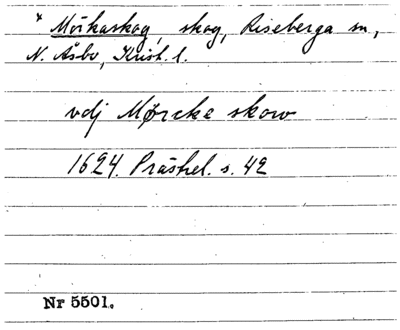 * Mörkaskog, skog, Riseberga sn,
N. Åsbo, Krist. l.
vdj Mørcke skow
1624. Präsrel. s. 42
Nr 5501.